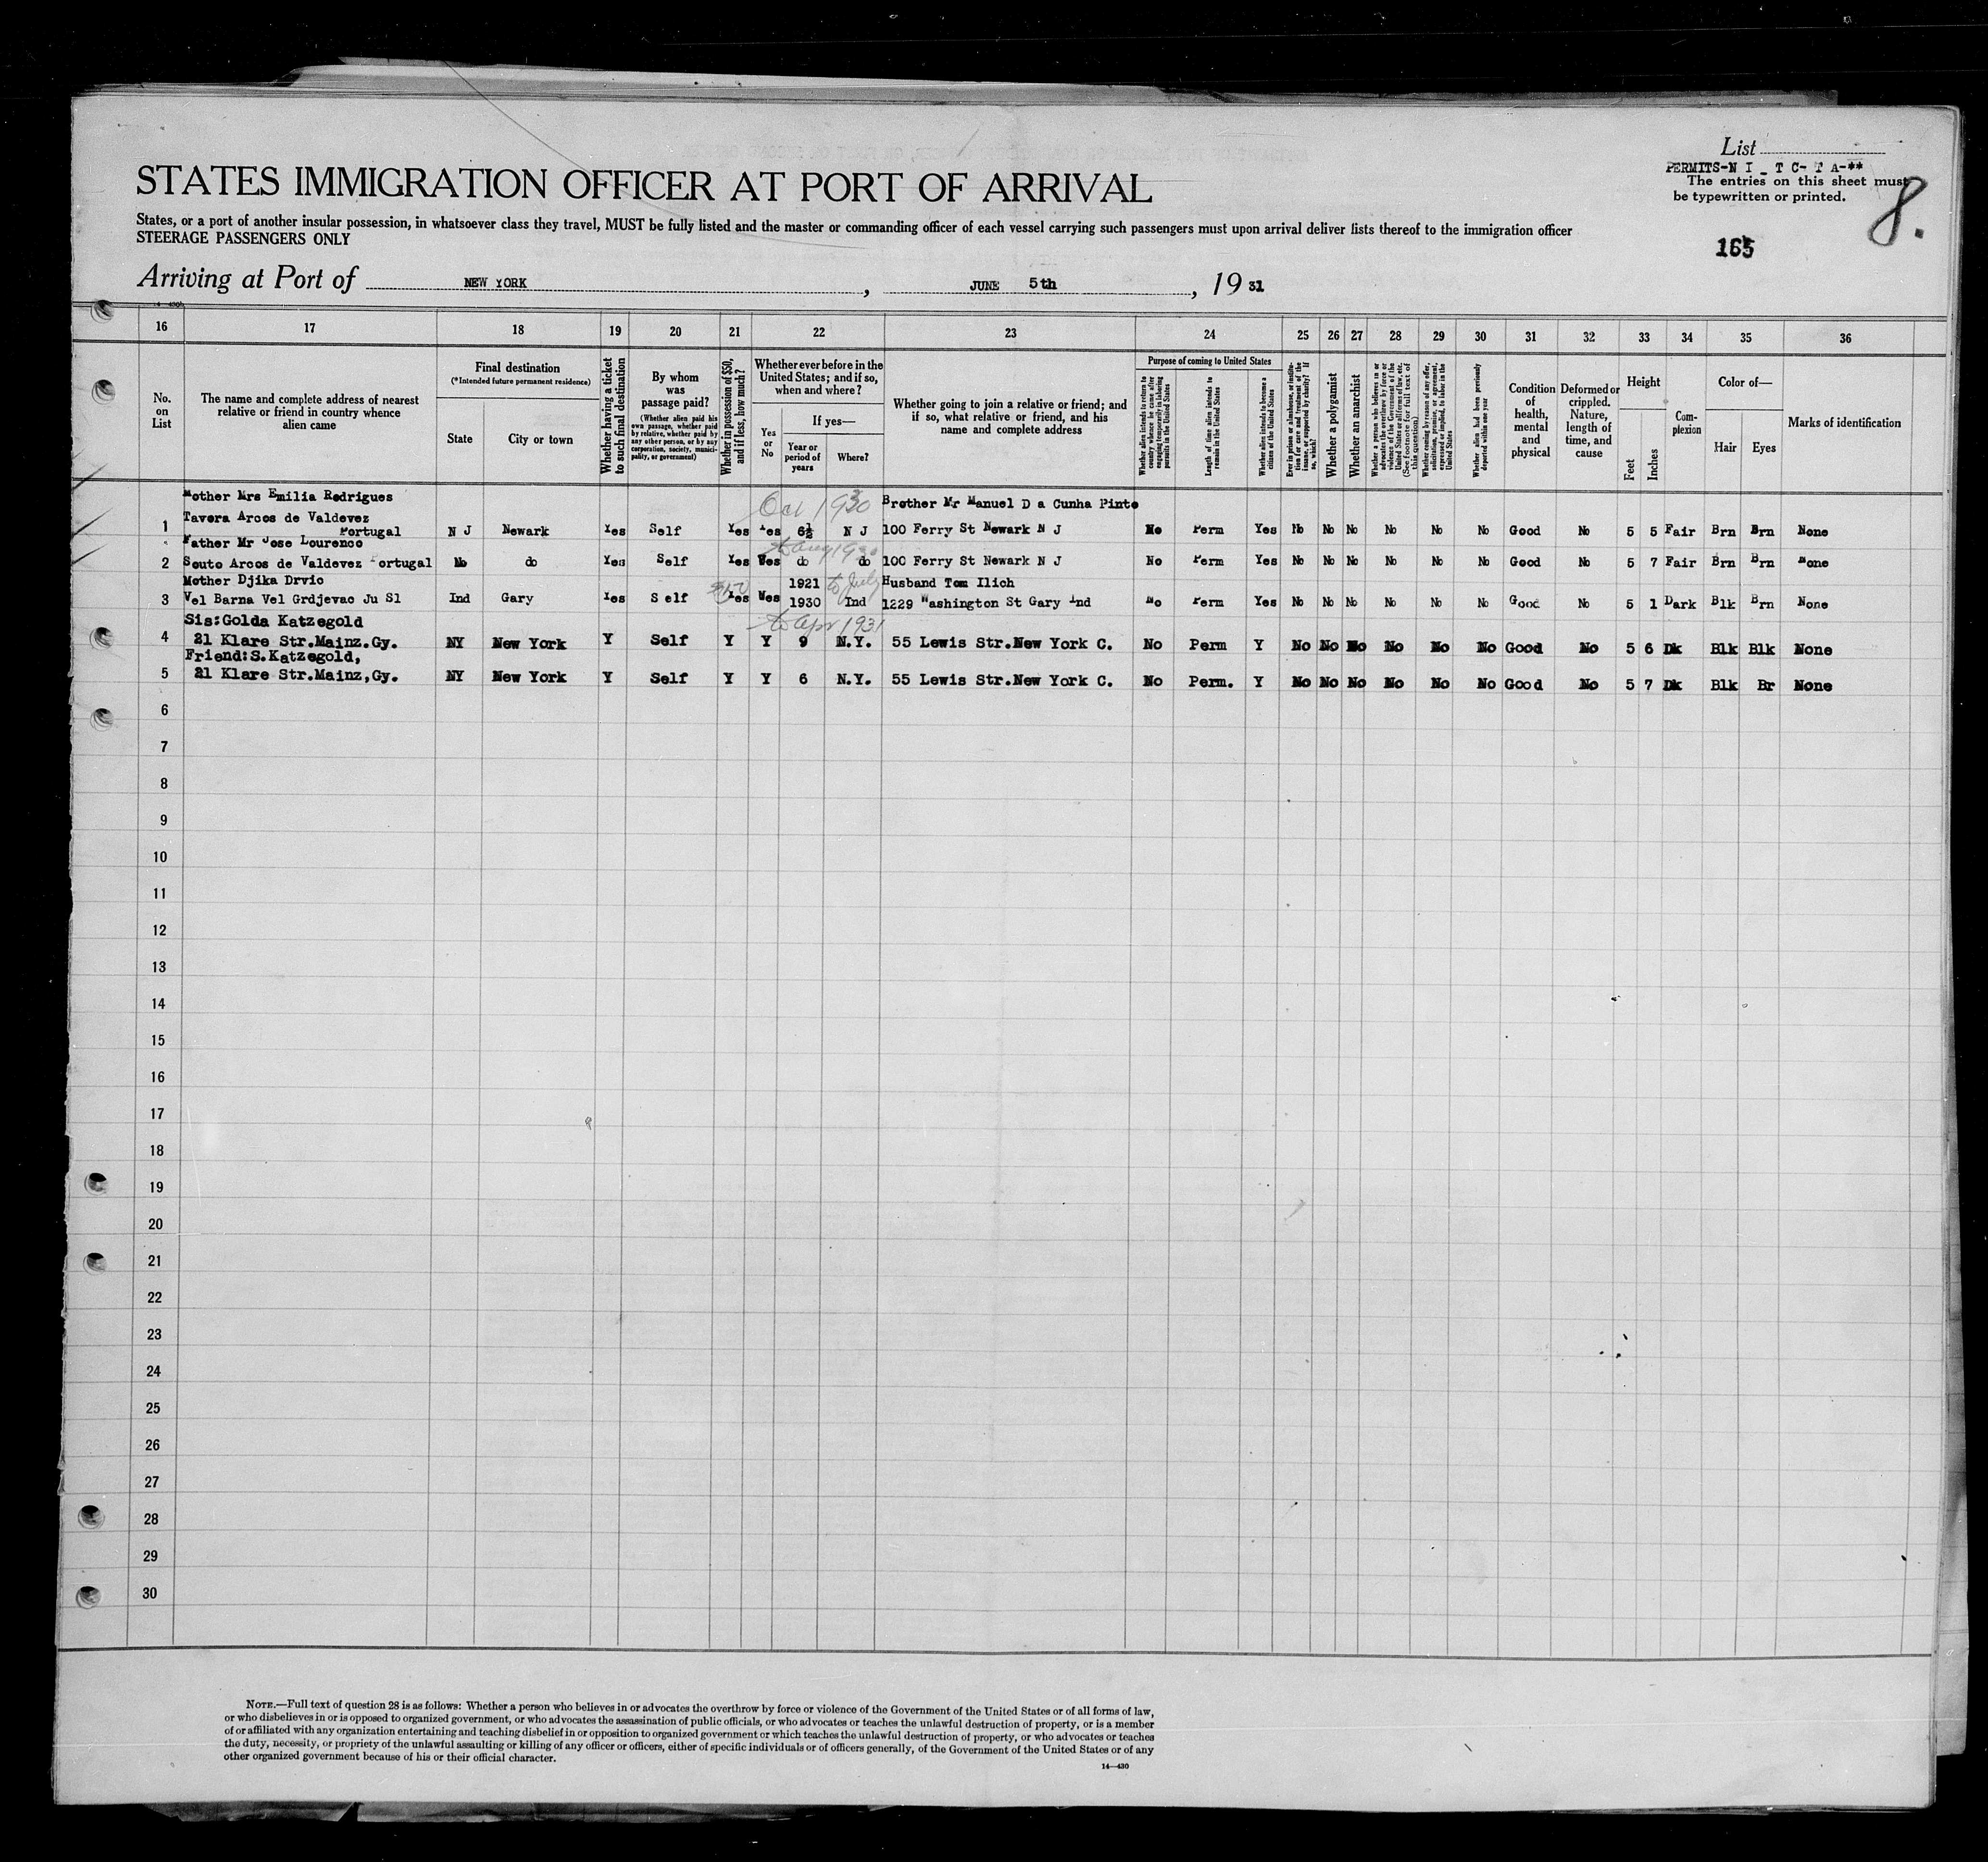 List
PERMITS-N I _ T C- T A-**
The entries on this sheet must
be typewritten or printed.
8.
165
STATES IMMIGRATION OFFICER AT PORT OF ARRIVAL
States, or a port of another insular possession, in whatsoever class they travel, MUST be fully listed and the master or commanding officer of each vessel carrying such passengers must upon arrival deliver lists thereof to the immigration officer
STEERAGE PASSENGERS ONLY
Arriving at Port of NEW YORK, JUNE 5th, 19 31
16 17 18 19 20 21 22 23 24 25 26 27 28 29 30 31 32 33 34 35 36
No. on List
The name and complete address of nearest relative or friend in country whence alien came
Final destination
(*Intended future permanent residence)
State
City or town
Whether having a ticket to such final destination
By whom was passage paid?
(Whether alien paid his own passage, whether paid by relative, whether paid by any other person, or by any corporation, society, municipality, or government)
Whether in possession of $50, and if less, how much?
Whether ever before in the United States; and if so, when and where?
Yes or No
If yes—
Year or period of years
Where?
Whether going to join a relative or friend; and if so, what relative or friend, and his name and complete address
Purpose of coming to United States
Whether alien intends to return to country whence he came after engaging temporarily in laboring pursuits in the United States
Length of time alien intends to remain in the United States
Whether alien intends to become a citizen of the United States
Ever in prison or almshouse, or institution for care and treatment of the insane, or supported by charity? If so, which?
Whether a polygamist
Whether an anarchist
Whether a person who believes in or advocates the overthrow by force or violence of the Government of the United States or all forms of law, etc. (See footnote for full text of this question)
Whether coming by reason of any offer, solicitation, promise, or agreement, expressed or implied, to labor in the United States
Whether alien had been previously deported within one year
Condition of health, mental and physical
Deformed or crippled. Nature, length of time, and cause
Height
Feet
Inches
Complexion
Color of—
Hair
Eyes
Marks of identification
Mother Mrs Emilia Rodrigues Oct 1930 Brother Mr Manuel D a Cunha Pinto
Tavora Arcos de Valdevez
1 Portugal N J Newark Yes Self Yes Yes 6½ N J 100 Ferry St Newark N J No Perm Yes No No No No No No Good No 5 5 Fair Brn Brn None
Father Mr Jose Lourenco to Aug 1930
2 Souto Arcos de Valdevez Portugal No do Yes Self Yes Yes do do 100 Ferry St Newark N J No Perm Yes No No No No No No Good No 5 7 Fair Brn Brn None
Mother Djika Drvic 1921 to July Husband Tom Ilich
3 Vel Barna Vel Grdjevac Ju Sl Ind Gary Yes Self Yes Yes 1930 Ind 1229 Washington St Gary Ind No Perm Yes No No No No No No Good No 5 1 Dark Blk Brn None
Sis:Golda Katzegold to Apr 1931
4 21 Klare Str.Mainz.Gy. NY New York Y Self Y Y 9 N.Y. 55 Lewis Str.New York C. No Perm Y No No No No No No Good No 5 6 Dk Blk Blk None
Friend:S.Katzegold,
5 21 Klare Str.Mainz,Gy. NY New York Y Self Y Y 6 N.Y. 55 Lewis Str.New York C. No Perm. Y No No No No No No Good No 5 7 Dk Blk Br None
6
7
8
9
10
11
12
13
14
15
16
17
18
19
20
21
22
23
24
25
26
27
28
29
30
NOTE.—Full text of question 28 is as follows: Whether a person who believes in or advocates the overthrow by force or violence of the Government of the United States or of all forms of law,
or who disbelieves in or is opposed to organized government, or who advocates the assassination of public officials, or who advocates or teaches the unlawful destruction of property, or is a member
of or affiliated with any organization entertaining and teaching disbelief in or opposition to organized government or which teaches the unlawful destruction of property, or who advocates or teaches
the duty, necessity, or propriety of the unlawful assaulting or killing of any officer or officers, either of specific individuals or of officers generally, of the Government of the United States or of any
other organized government because of his or their official character.
14—430